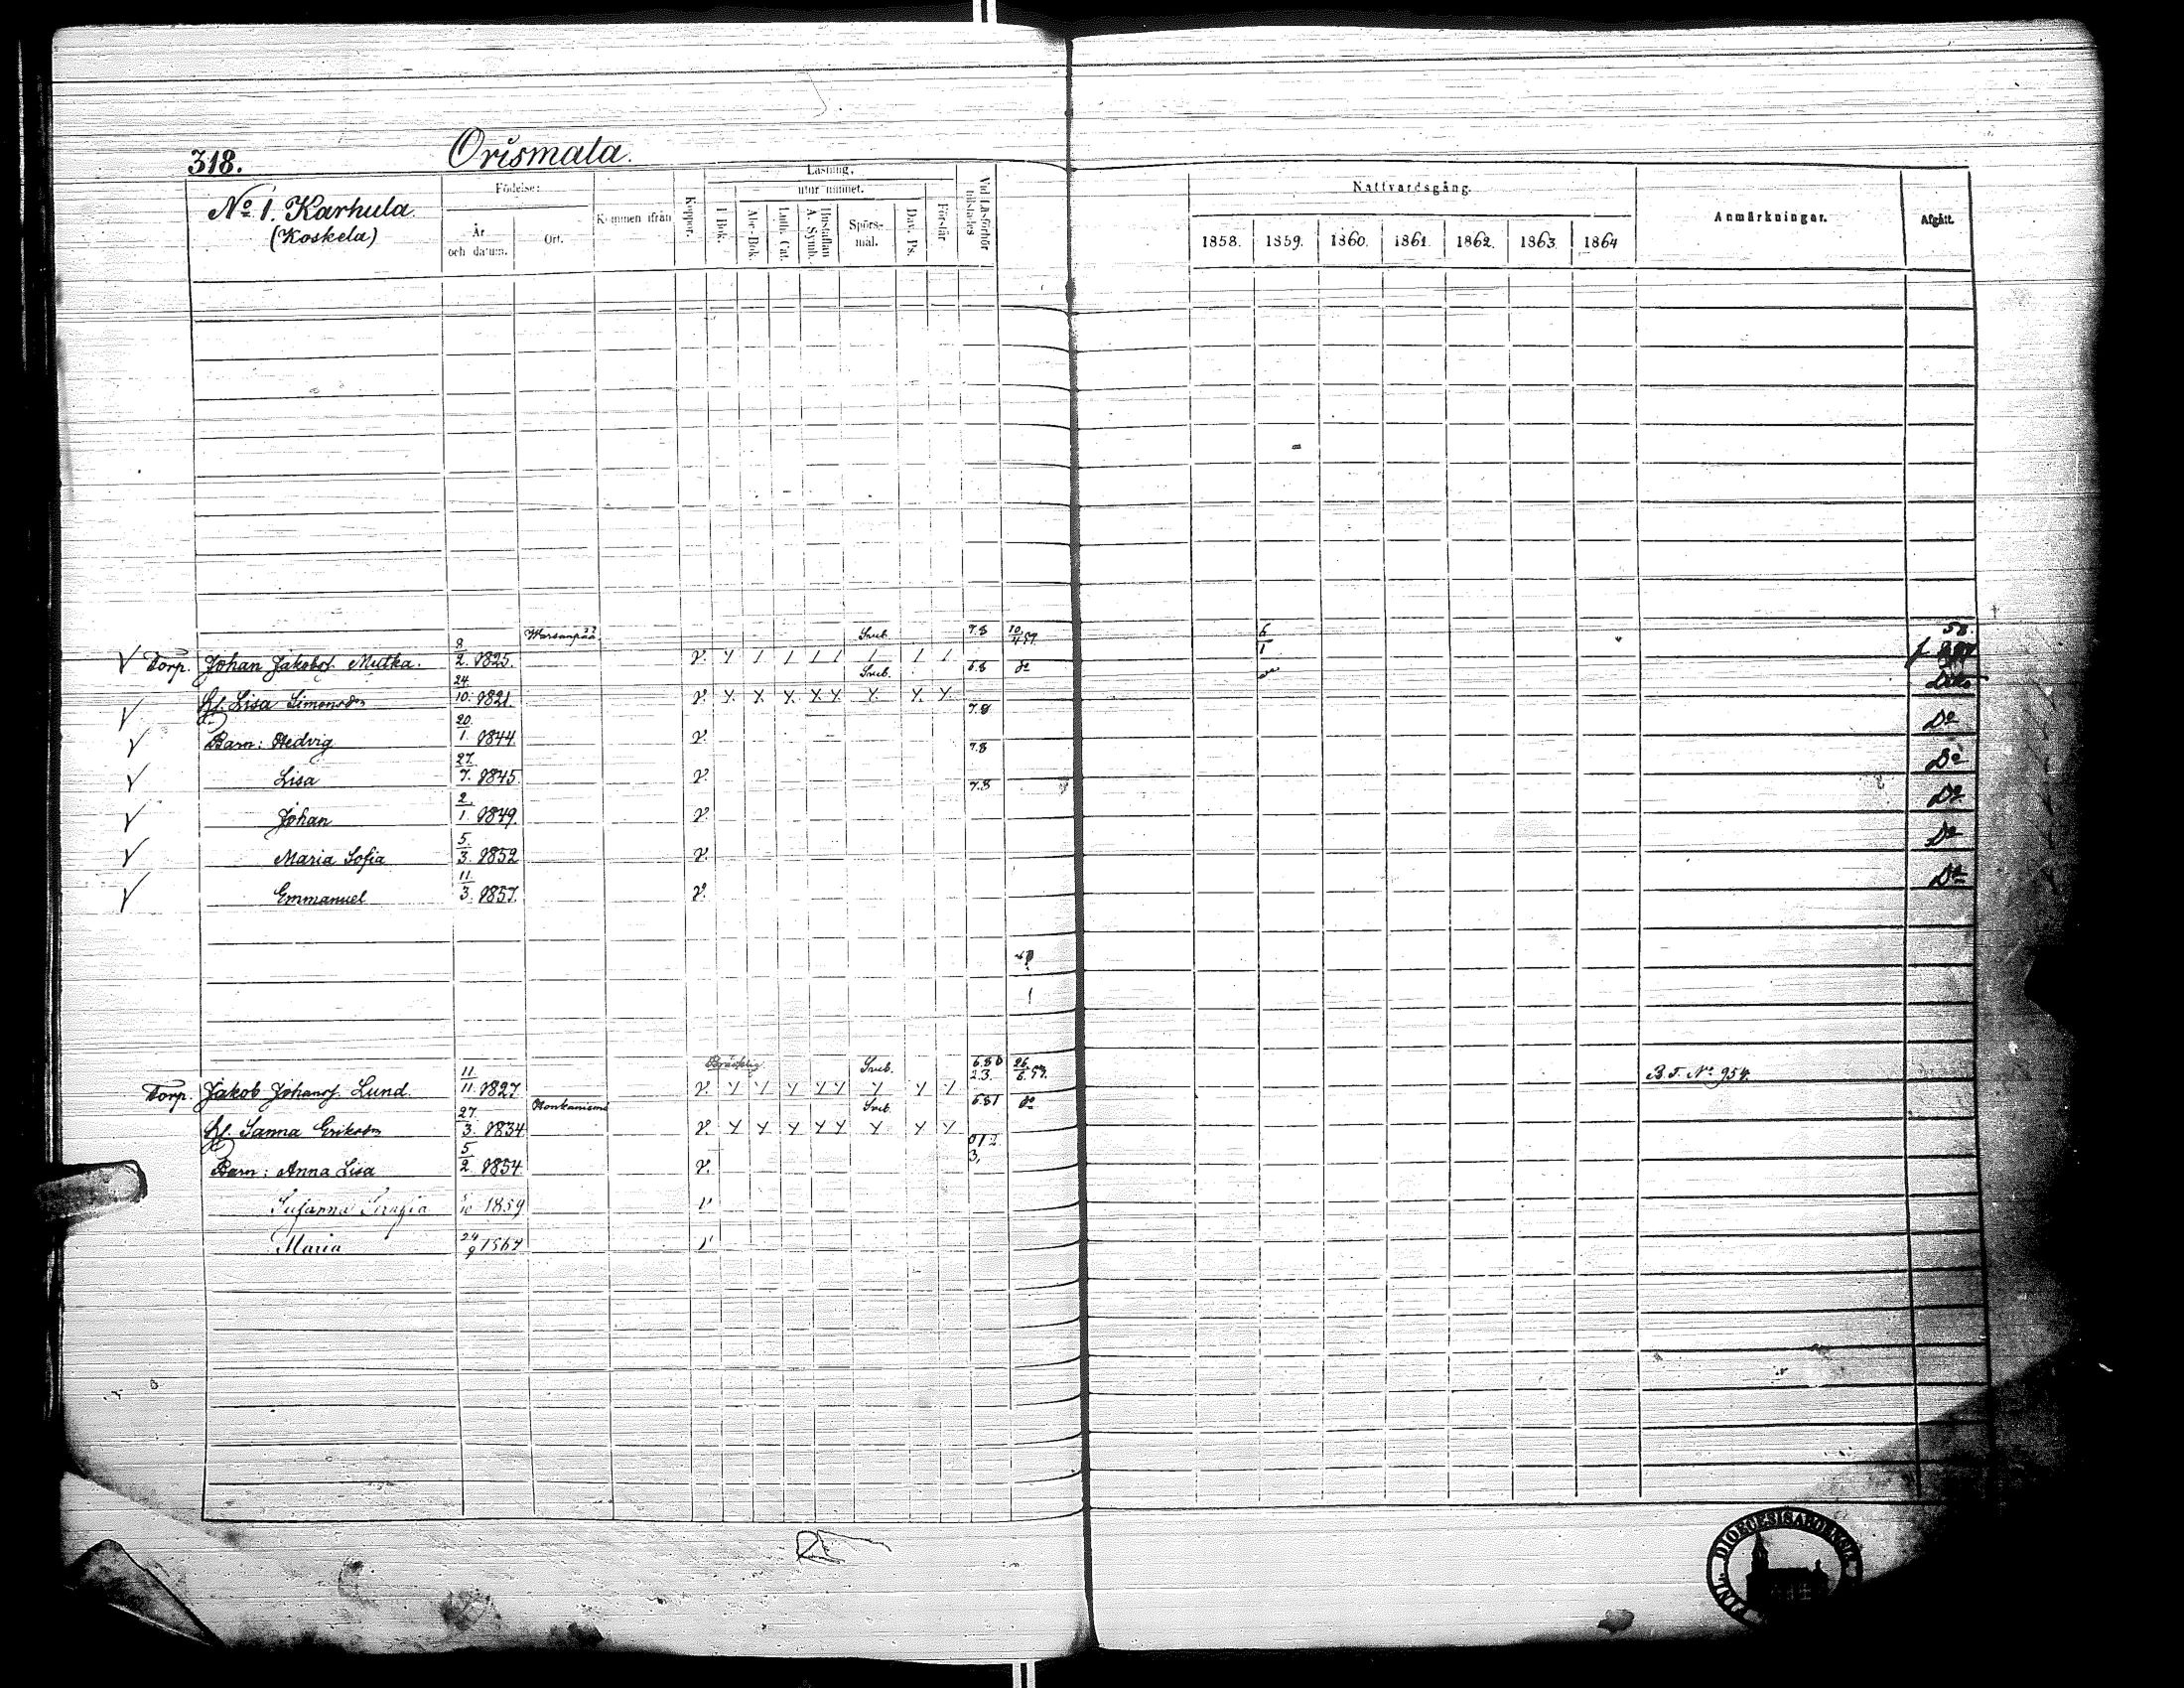 318. Orismala.
No 1. Karhula.
(Koskela)
Födelse:
År
och datum.
Ort.
Kommen ifrån
Koppor.
Läsning,
utur minnet.
I Bok.
Abc-Bok.
Luth. Cat.
Hustaflan
A. Symb.
Spörs-
mål.
Dav. Ps.
Förstår
Vid Läsförhör
tillstädes
Nattvardsgång.
1858. 1859. 1860. 1861. 1862. 1863. 1864
Anmärkningar.
Afgått.
√ Torp. Johan Jakobsf. Mutka. 8/2. 1825. v. Svub. 7.8 10/4 59. 6/1
√ H. Lisa Simonsdr 24./10. 1821. v. x x x x x x x x Svub. 6.8 do
√ Barn: Hedvig 20./1. 1844. v. 7.8 Do
√ Lisa 27./7. 1845. v. 7.8 Do
√ Johan 2./1. 1849. v. 7.8 Do
√ Maria Sofia 5/3. 1852 v. Do
√ Emmanuel 11./3. 1857. v. Do
Torp. Jakob Johansf. Lund. 11./11. 1827. v. Bräcklig Svub. 26./6. 59. B. T. No 954.
H. Sanna Eriksdr 27./3. 1834 v. Svub. 681 do
Barn: Anna Lisa 5/2. 1854. v.
Susanna Serafia 1859 v
Maria 24/9 1864 v
DIOECESIS ABOENSIS